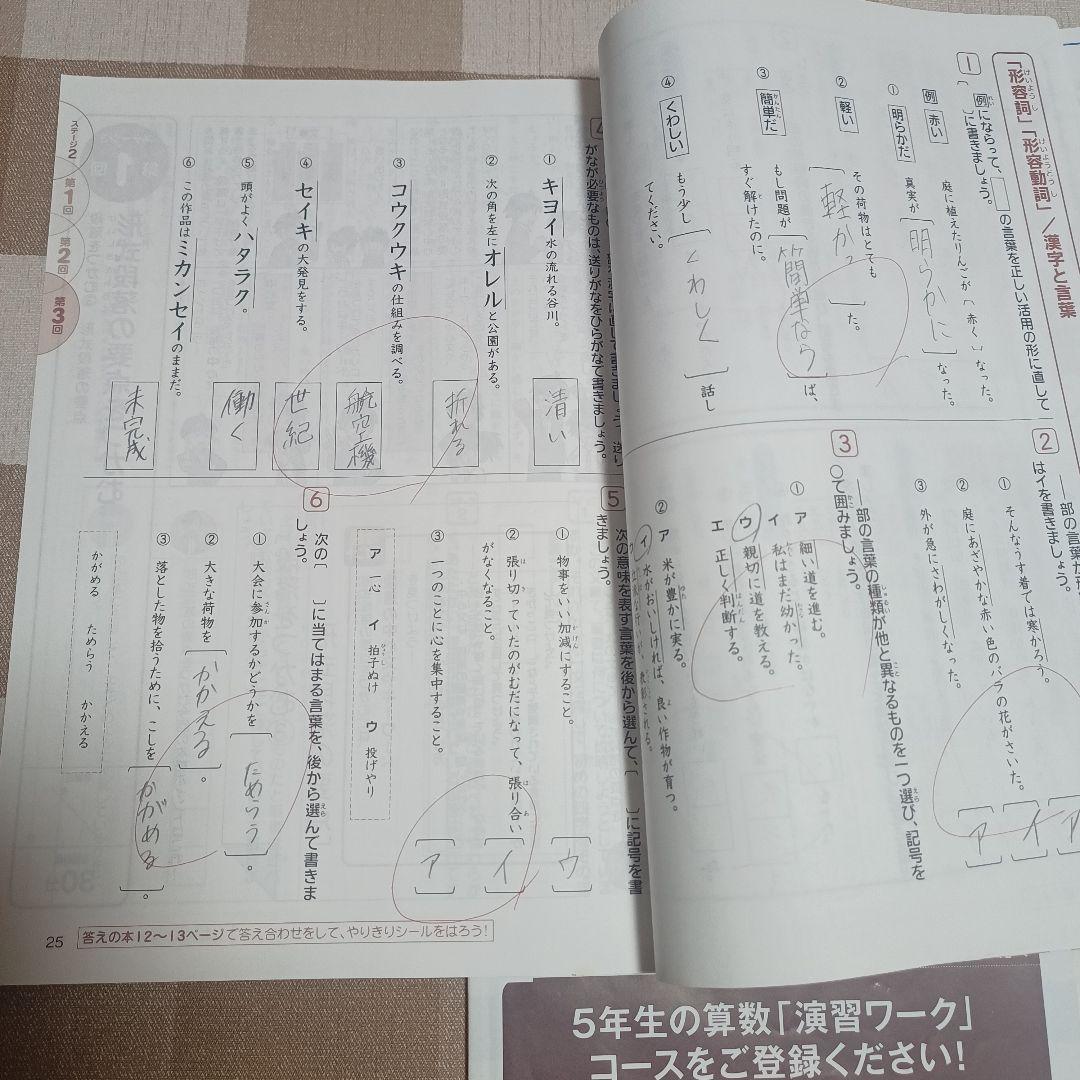 「形容詞」「形容動詞」/漢字と言葉
1
例にならって、□の言葉を正しい活用の形に直して
〔　〕に書きましょう。
例 赤い 庭に植えたりんごが〔赤く〕なった。
① 明らかだ 真実が〔明らかに〕なった。
② 軽い その荷物はとても〔軽かっ〕た。
③ 簡単だ もし問題が〔簡単なら〕ば、
すぐ解けたのに。
④ くわしい もう少し〔くわしく〕話し
てください。
2
はイを書きましょう。
① そんなうす着では寒かろう。
② 庭にあざやかな赤い色のバラの花がさいた。
③ 外が急にさわがしくなった。
ア
イ
ア
3
――部の言葉の種類が他と異なるものを一つ選び、記号を
○で囲みましょう。
① ア 細い道を進む。
イ 私はまだ幼かった。
ウ 親切に道を教える。
エ 正しく判断する。
② ア 米が豊かに実る。
イ 水がおいしければ、良い作物が育つ。
4
がなが必要なものは、送りがなをひらがなで書きましょう。
① キヨイ水の流れる谷川。
清い
② 次の角を左にオレルと公園がある。
折れる
③ コウクウキの仕組みを調べる。
航空機
④ セイキの大発見をする。
世紀
⑤ 頭がよくハタラク。
働く
⑥ この作品はミカンセイのままだ。
未完成
5
次の意味を表す言葉を後から選んで、〔　〕に記号を書
きましょう。
① 物事をいい加減にすること。
〔ウ〕
② 張り切っていたのがむだになって、張り合い
がなくなること。
〔イ〕
③ 一つのことに心を集中すること。
〔ア〕
ア 一心 イ 拍子ぬけ ウ 投げやり
6
次の〔　〕に当てはまる言葉を、後から選んで書きま
しょう。
① 大会に参加するかどうかを〔ためらう〕。
② 大きな荷物を〔かかえる〕。
③ 落とした物を拾うために、こしを〔かがめる〕。
かがめる ためらう かかえる
ステージ2
第1回
第2回
第3回
25
答えの本12〜13ページで答え合わせをして、やりきりシールをはろう!
5年生の算数「演習ワーク」
コースをご登録ください!